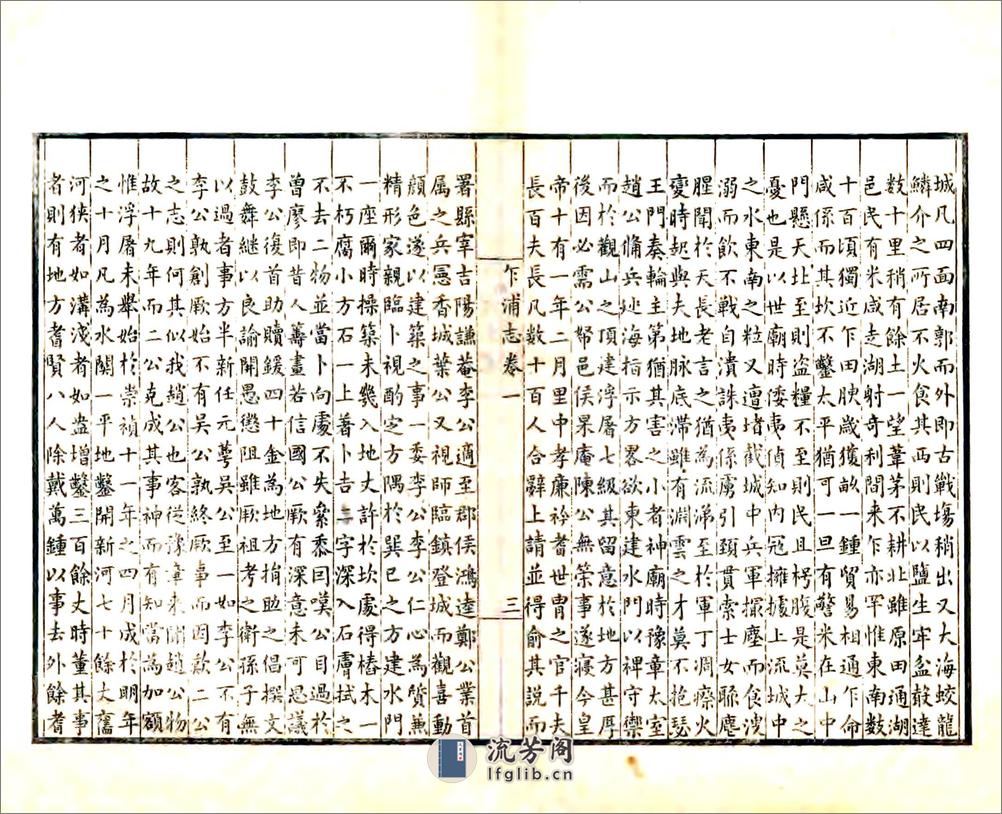 城凡四面南郭而外即古戰塲稍出又大海蛟龍
鱗介之所居不火食其西則民以鹽生牢盆敲達
数十里稍有餘土一望葦茅不耕北雖原田通湖
邑民有米咸走湖射奇利間来乍亦罕惟東南数
十百頃獨近乍田腴歲獲畝一鍾貿易相通乍命
咸係而其坎不鑿太平猶可一旦有警米在山中
門懸天北至則盗糧不至則民且枵腹是莫大之
憂也是以世廟時倭夷偵知内冦擁據上流城中
之水東南之粒又遭堵截城中兵軍撮塵而食洩
溺而飲不戰自潰誅夷係虜引頸貫索士女聮塵
腥聞於天長老言之猶為流涕至於軍丁凋瘵火
變時起與夫地脉底滞雖有淵雲之才莫不抱瑟
王門奏輪主第猶其害之小者神廟時豫章太室
趙公備兵廵海指示方畧欲東建水門以裨守禦
而於觀山之頂建浮屠七級其留意於地方甚厚
後因必需公帑邑侯杲庵陳公無策事遂寝今皇
帝十有一年二月里中孝亷衿耆世胄之官千夫
長百夫長凡数十百人合辭上請並得俞其説而
乍浦志卷一
三
署縣宰吉陽謙菴李公適至郡侯鴻逵鄭公業首
属之兵憲香城葉公又視師臨鎮登城而觀喜動
顔色遂以建築之事一委李公李公仁心為質兼
精形家親臨卜視酌定方隅於巽巳之方建水門
一座爾時操築未幾入地丈許於坎處得樁木一
不朽腐小方石一上著卜吉二字深入石膚拭之
不去二物並當卜向處不失絫黍曰嘆公目過於
曾廖即昔人籌畫若信國公厥有深意未可思議
李公復首助贖鍰四十金為地方捐助之倡撰文
鼓舞繼以良諭開愚懲阻雖厥祖考之衛孫子無
以過者事方半新任元萼吳公至一如李公不有
李公孰創厥始不有吳公孰終厥事而因歎二公
之志則何其似我趙公也客從豫章来闗趙公物
故十九年而二公克成其事神而有知當為加額
惟浮屠未舉始於崇禎十一年之四月成於明年
之十月凡為水闗一平地鑿開新河七十餘丈舊
河狹者如溝淺者如盎增鑿三百餘丈時董其事
者則有地方耆賢八人除戴萬鍾以事去外餘耆
流芳阁
lfglib.cn